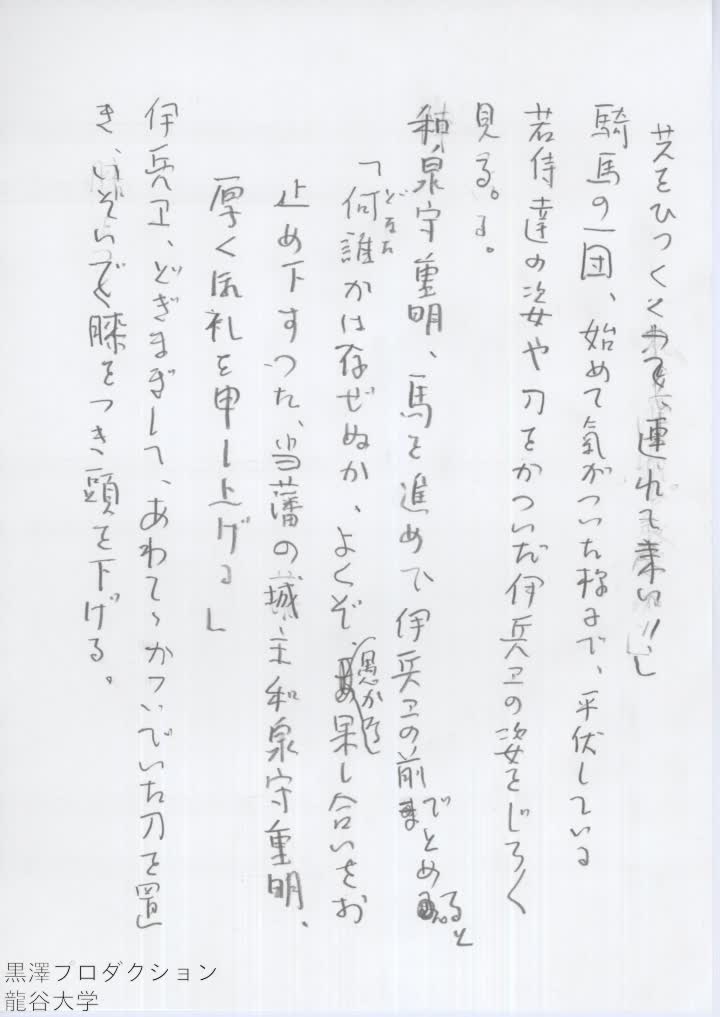 其をひつくくつて、連れて来い!!」
騎馬の一団、始めて氣がついた様子で、平伏している
若侍達の姿や刀をかついだ伊兵ヱの姿をじろく
見る。
和泉守重明、馬を進めて伊兵ヱの前でとめると
「何誰かは存ぜぬか、よくぞ愚かな果し合いをお
どなた
止め下すつた、当藩の城主和泉守重明、
厚く御礼を申し上げる」
伊兵ヱ、どぎまぎして、あわてゝかついでいた刀を置
き、いそいで膝をつき頭を下げる。
黒澤プロダクション
龍谷大学